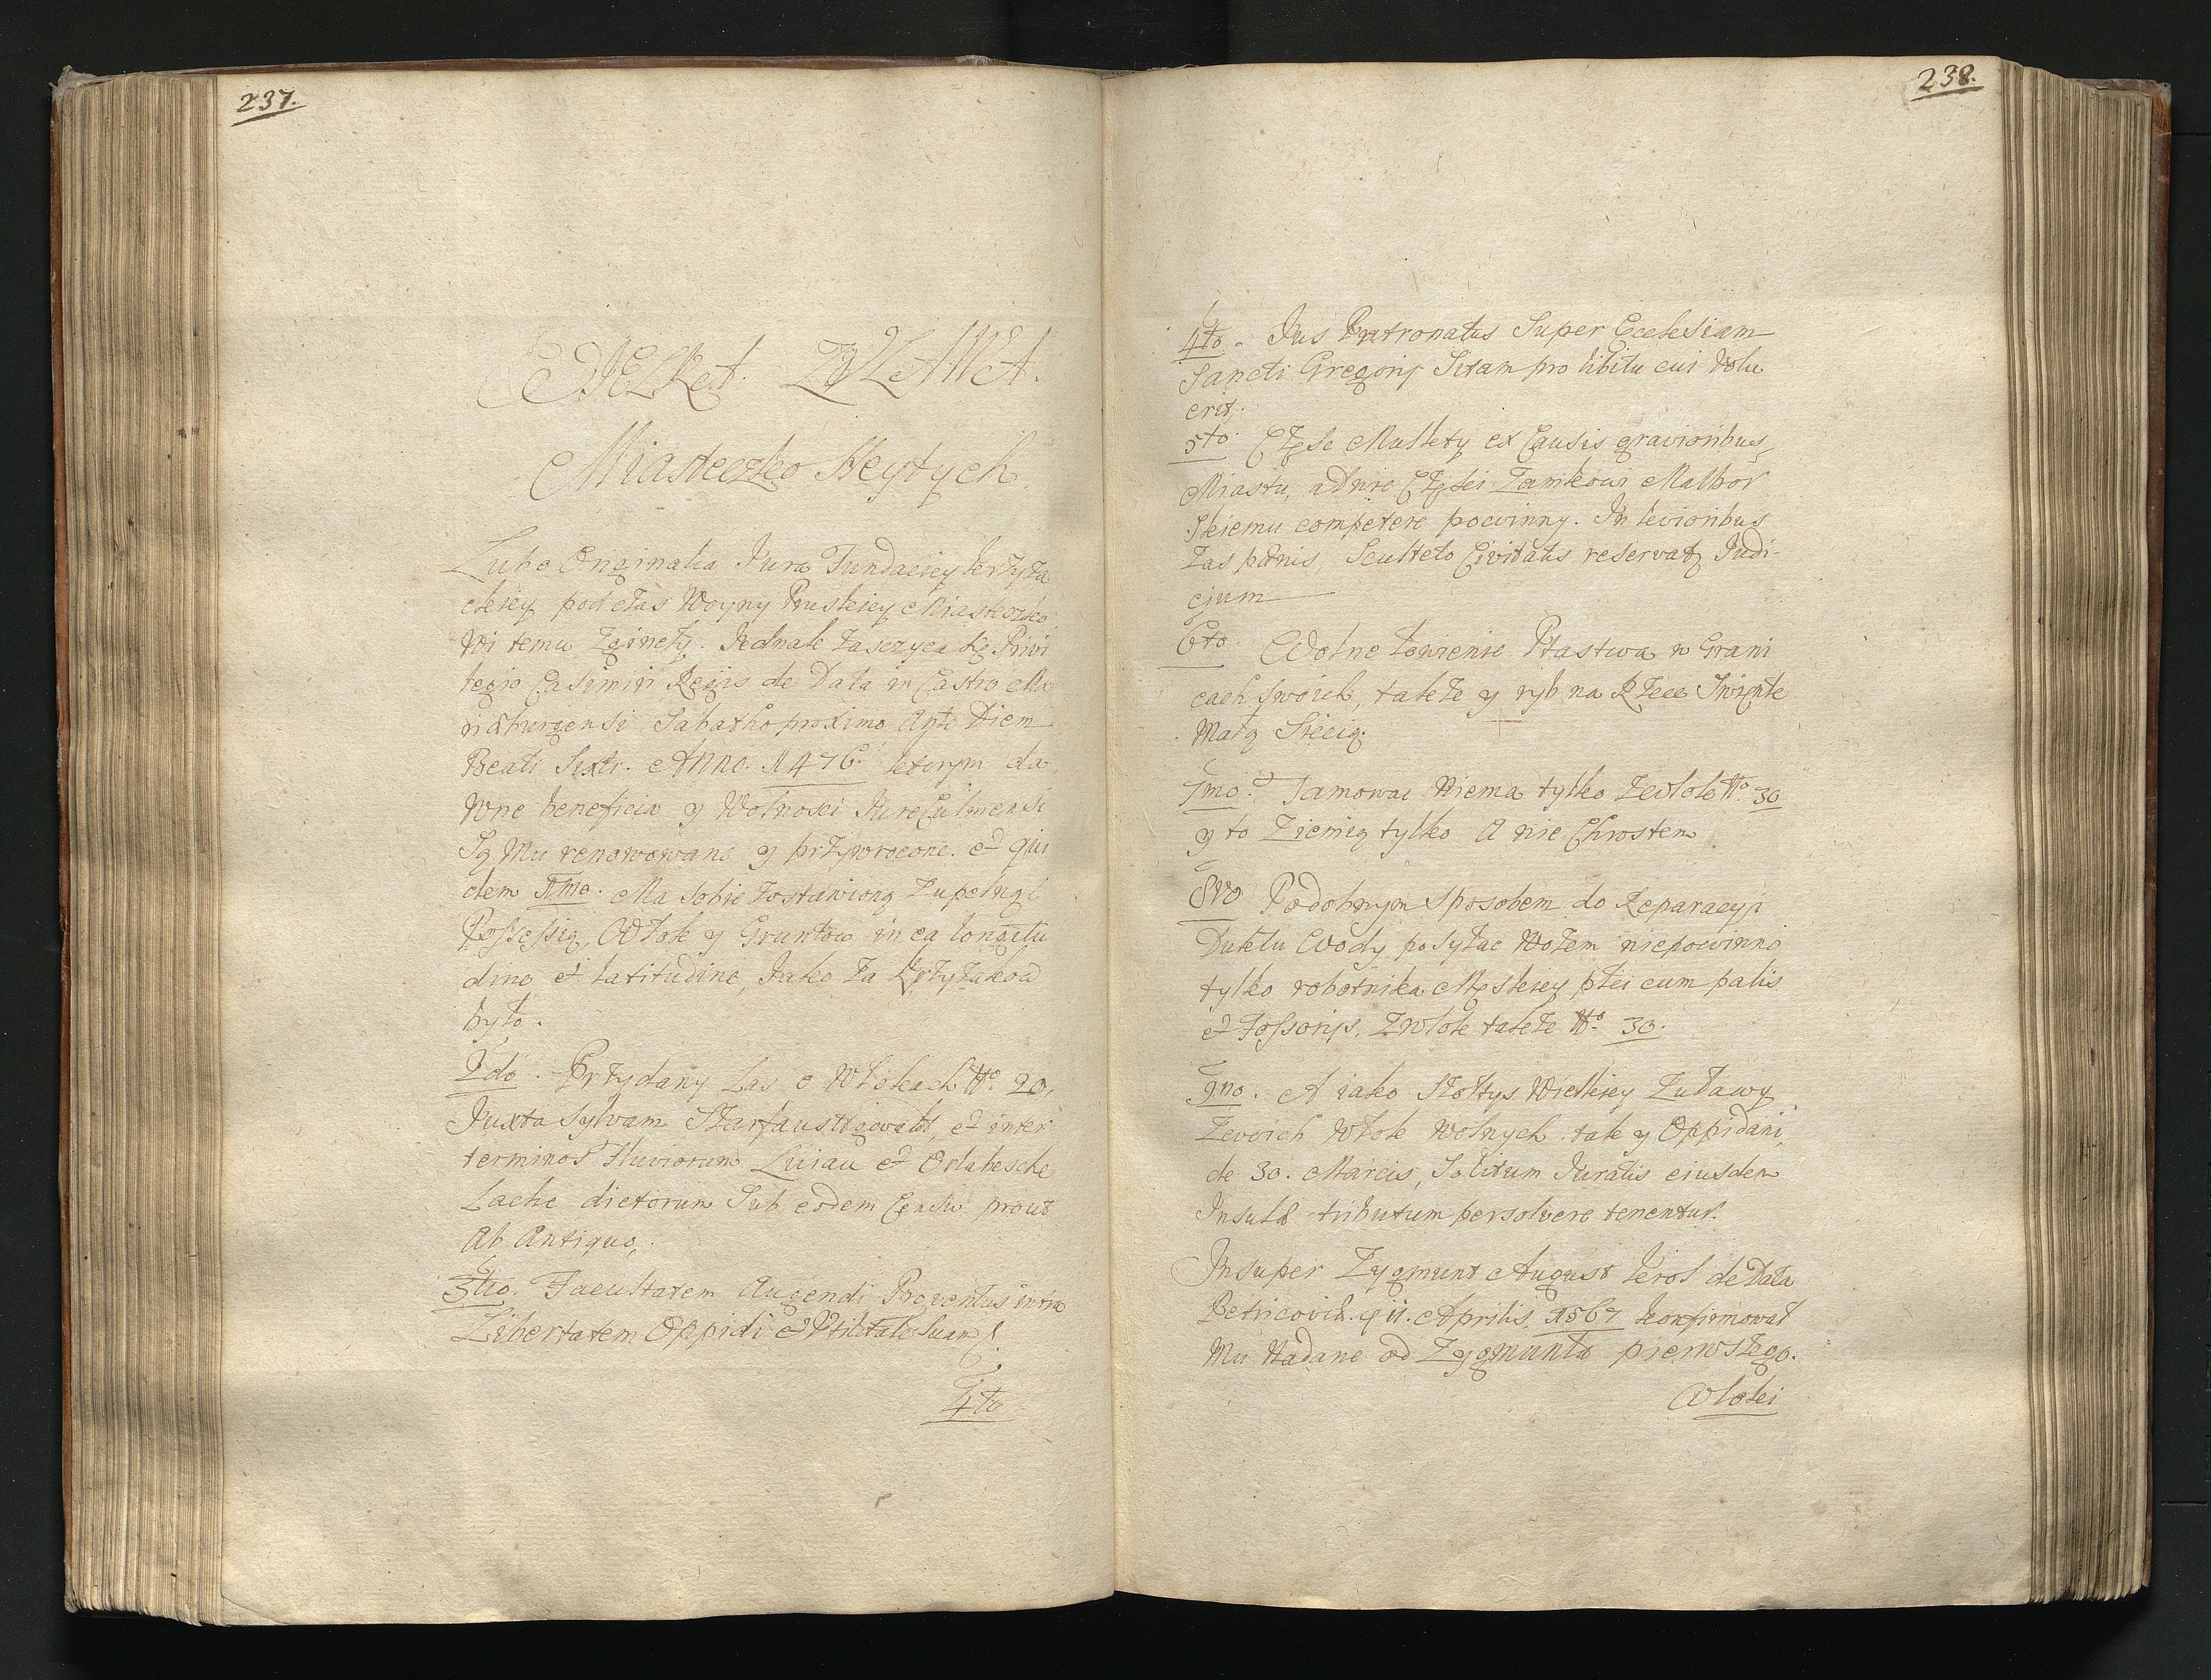 237.
WIELKA ZUŁAWA.
Miasteczko Neytych
Lubo Originalia Jura Fundacyey Krzyża
ckiey pod czas Woyny Pruskiey Miasteczko
wi temu zgineły. Jednak zaszczyca się Privi
legio Casimiri Regis de Data in Castro Ma
riæburgensi Sabatho proximo Ante Diem
Beati Sixti. Anno. 1476. ktorym da
wne beneficia y Wolnosci Jure Culmensi
Są Mu renowowane y przywrocone. et qui
dem 1mo. Ma sobie zostawioną zupełną
Possessią, Włok y Gruntow in ea longitu
dine et latitudine, Jako za Krzyżakow
było.
2do. Przydany Las o Włokach No 20,
Juxta Sylvam
terminos Fluviorum et
Lache dictorum Sub eodem Censu prout
Ab Antiquo,
3tio. Facultatem Augendi Proventus intra
Libertatem Oppidi et Utilitate Suam
4to
238.
4to. Jus Patronatus Super Ecclesiam
Sancti Gregorij Sitam pro libitu cui Volu
erit,
5to. Część Mulkty ex Causis gravioribus,
Miastu, a dwie Części Zamkowi Malbor
skiemu competere powinny. In levioribus
zas pænis, Sculteto Civitatis reservatą Judi-
cium
6to. Wolne łowienie Ptastwa w Grani
cach swoich, także y ryb na Rzece Swięte
Małą Siecią.
7mo. Tamowac Niema tylko z Włok No 30
y to Ziemią tylko A nie Chrostem
8vo Podobnym sposobem do Reparacyi
Duktu Wody posyłac Wozem niepowinno
tylko robotnika Męskiey płci cum palis
et fossorijs, z Włok także No. 30.
9no. A iako Szołtys Wielkiey Zuławy
z swoich Włok Wolnych tak y Oppidani,
de 30. Marcis, Solitum Juratis eiusdem
Insulæ tributum persolvere tenentur.
Insuper Zygmunt August Krol de Data
Petricovie. 11. Aprilis. 1567 konfirmował
Mu Nadane od Zygmunta pierwszego.
Włoki